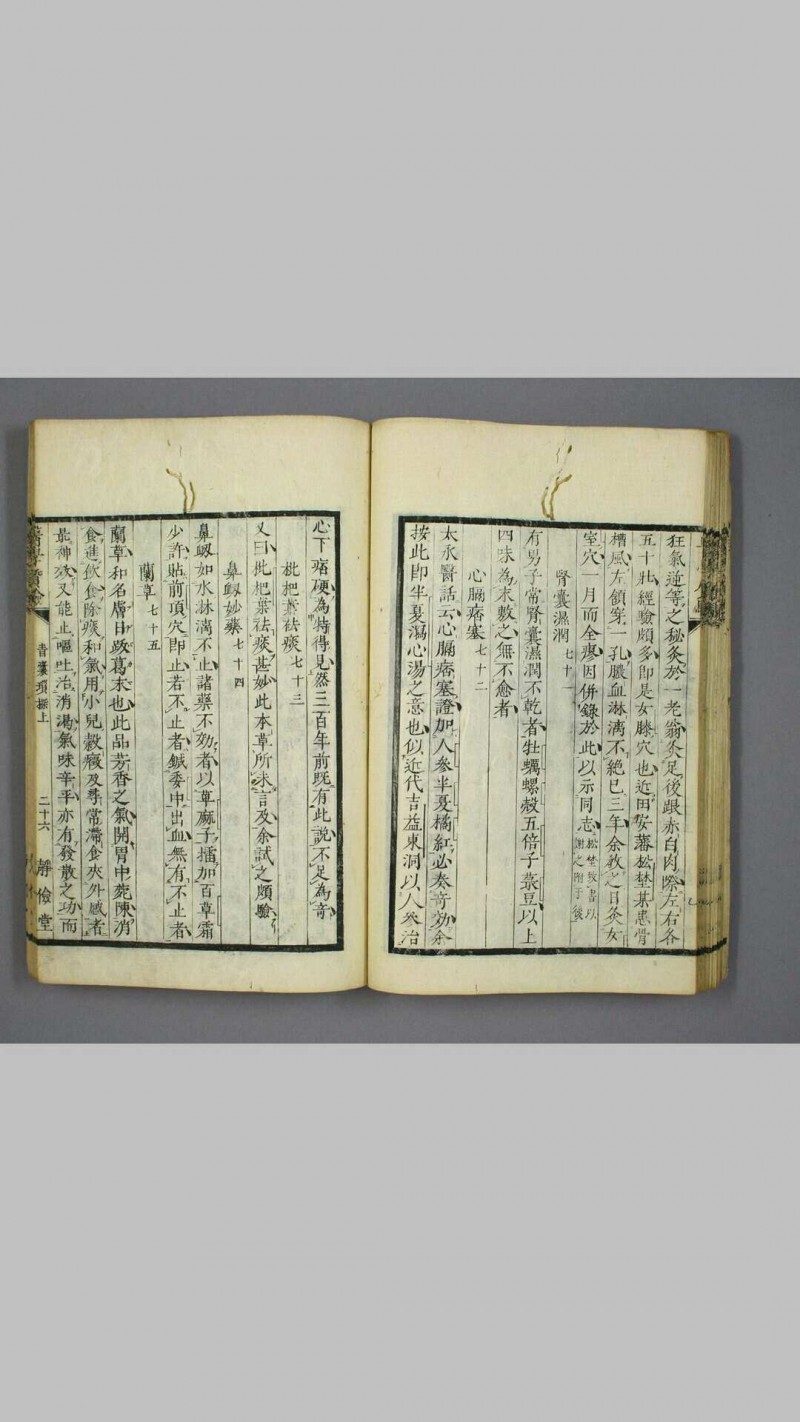 狂氣逆等之秘灸於一老翁灸足後跟赤白肉際左右各
五十壯經驗頗多即是女膝穴也近田安藩松埜某患骨
槽風左頷穿一孔膿血淋漓不絕已三年余敎之日灸女
室穴一月而全瘳因併錄於此以示同志松埜致書以
謝之附于後
腎囊濕潤七十一
有男子常腎囊濕潤不乾者牡蠣螺殼五倍子菉豆以上
四味為末敷之無不愈者
心膈痞塞七十二
太氶醫話云心膈痞塞證加人參半夏橘紅必奏奇効余
按此即半夏瀉心湯之意也似近代吉益東洞以人參治
心下痞硬為特得見然三百年前既有此說不足為奇
枇杷葉祛痰七十三
又曰枇杷葉祛痰甚妙此本草所未言及余試之頗驗
鼻衂妙藥七十四
鼻衂如水淋漓不止諸藥不効者以草麻子擂加百草霜
少許貼前項穴即止若不止者鍼委中出血無有不止者
蘭草七十五
蘭草和名膚日跋葛末也此品芳香之氣開胃中菀陳消
食進飲食除痰和氣用小兒穀癥及尋常滯食夾外感者
最神效又能止嘔吐治消渴氣味辛平亦有發散之功而
青囊瑣探上
二十六
靜儉堂